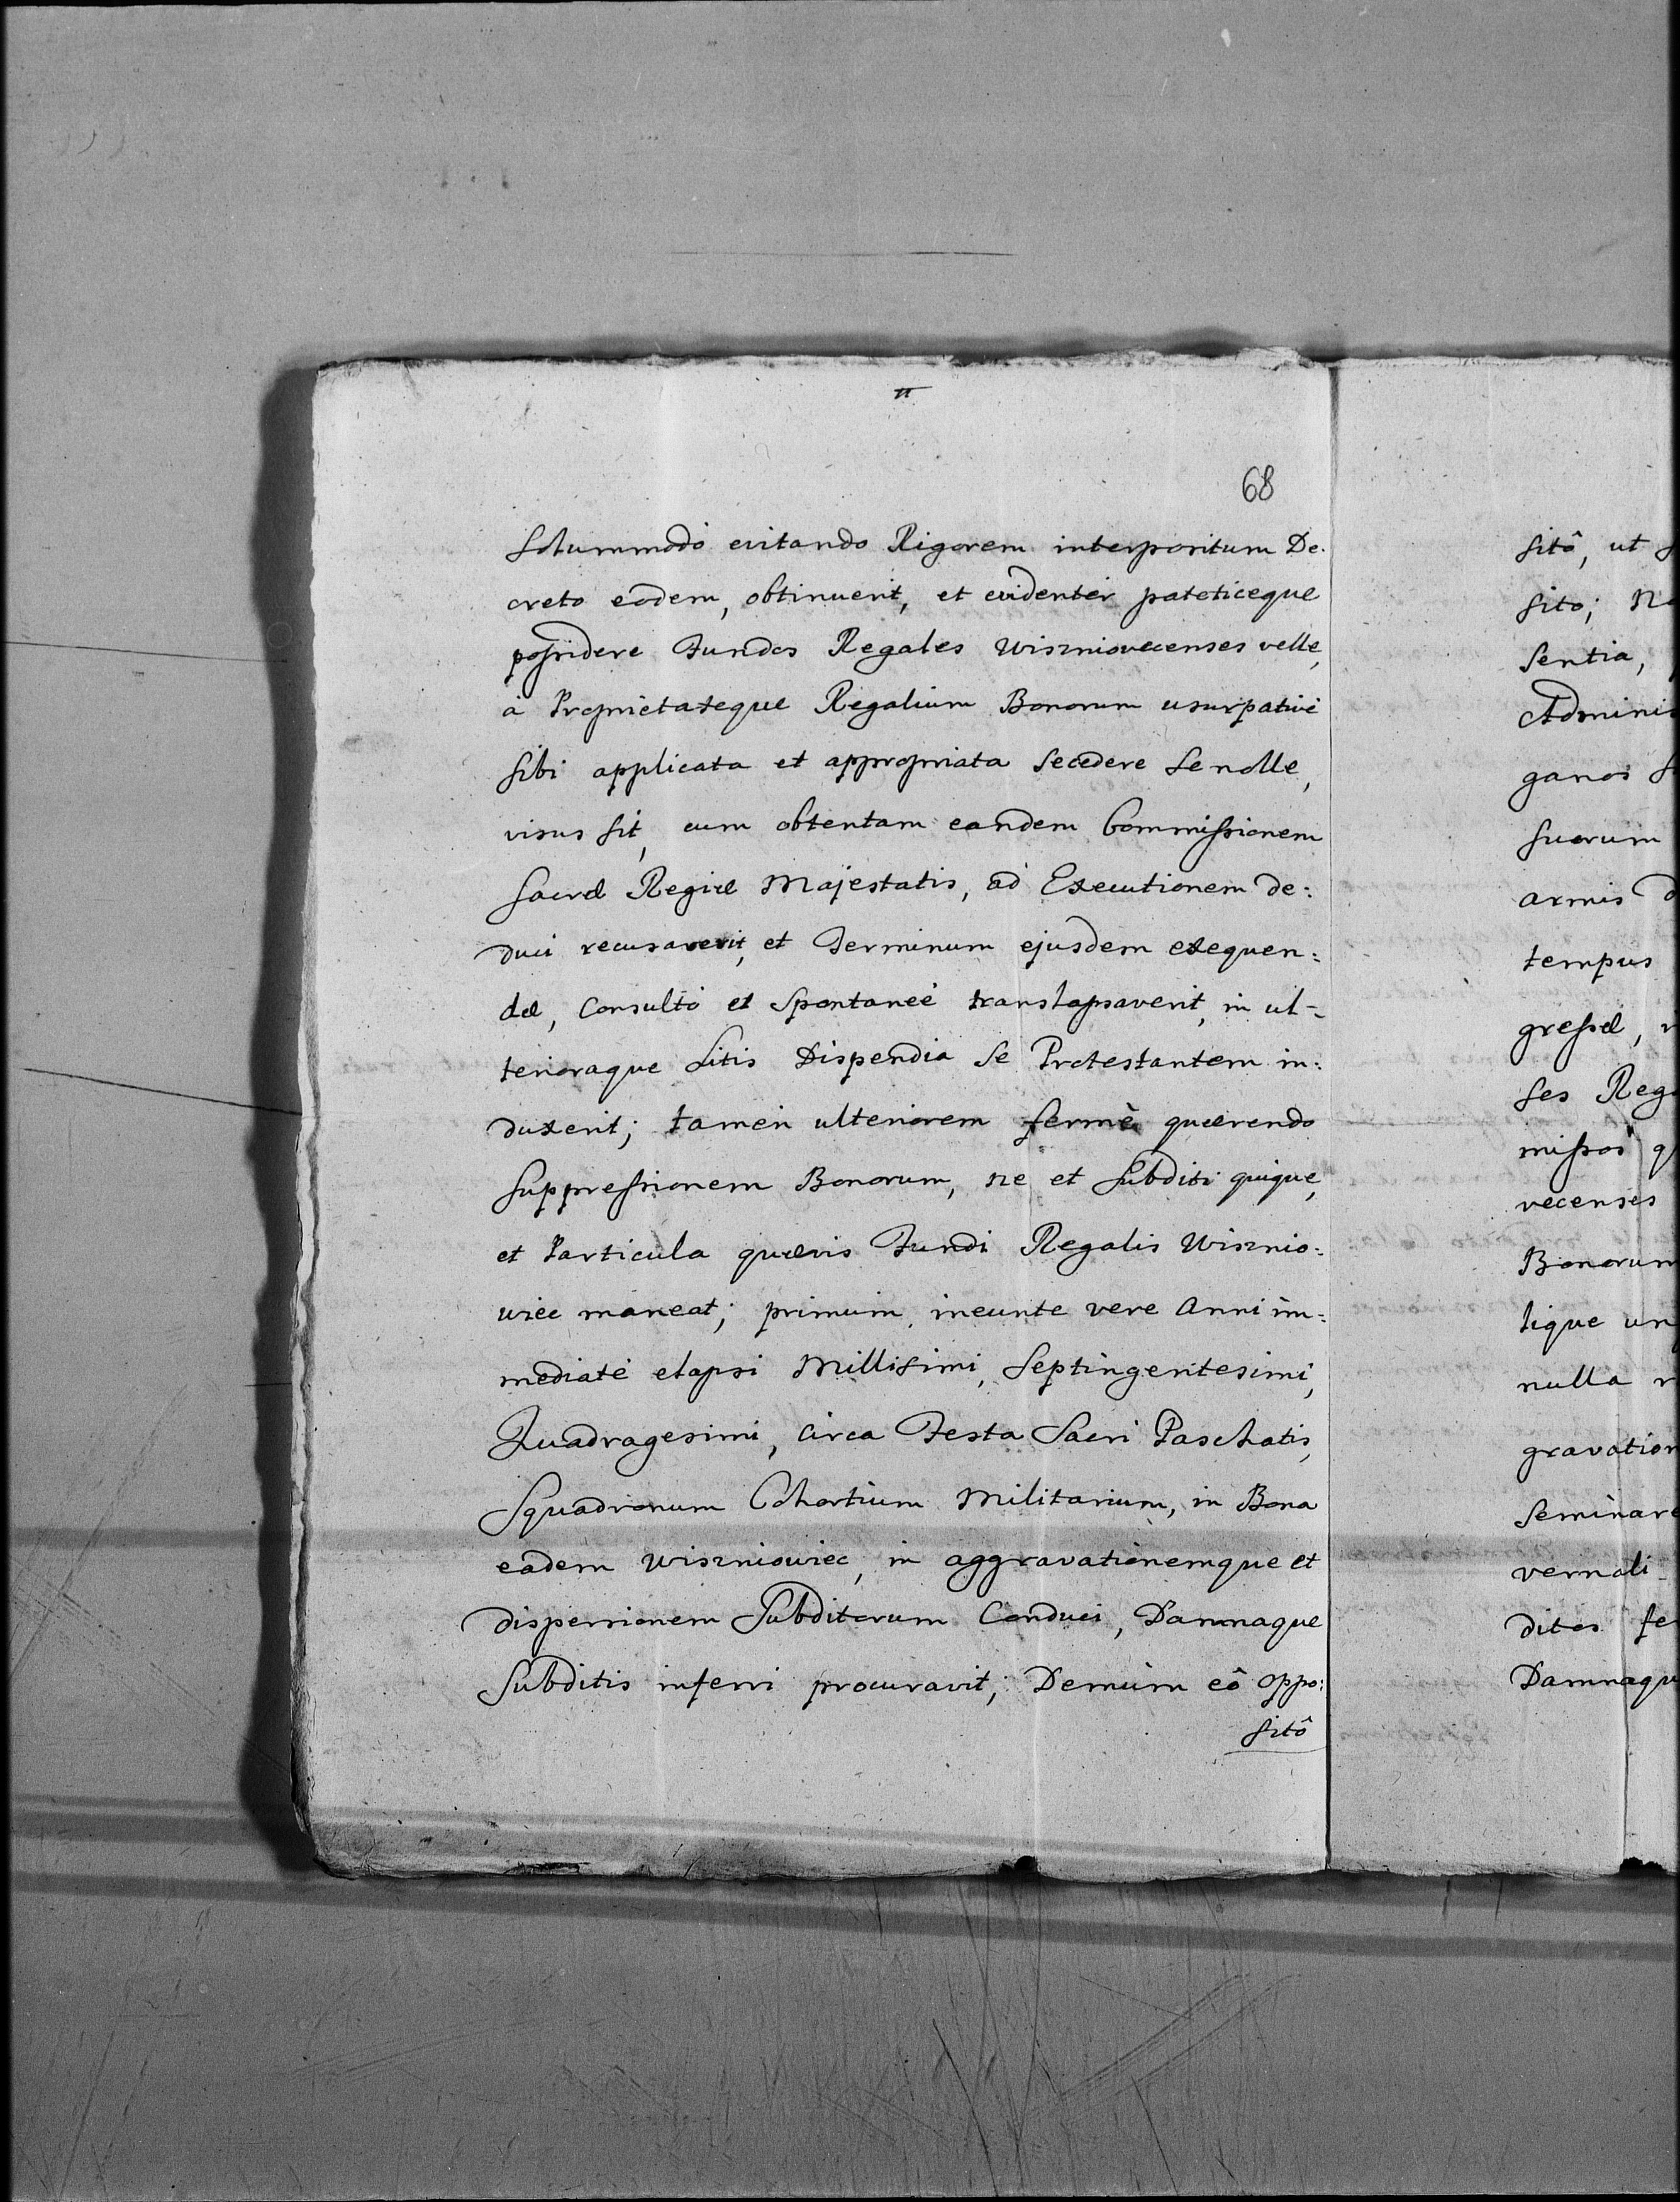 68
Solummodò evitando Rigorem interpositum De-
creto eodem, obtinuerit, et evidenter pateticeque
possidere Fundos Regales Wiszniovecenses velle,
à Proprietateque Regalium Bonorum usurpativè
sibi applicata et appropriata secedere se nolle,
visus sit, cum obtentam eandem Commissionem
Sacræ Regiæ Majestatis, ad Executionem de:
duci recusaverit, et Terminum ejusdem exequen:
dæ, Consultò et Spontaneè translapsaverit, in ul-
terioraque Litis Dispendia se Protestantem in:
duxerit; tamen ulteriorem fermè quærendo
suppressionem Bonorum, ne et Subditi quique,
et Particula quævis Fundi Regalis Wisznio:
wiec maneat; primum ineunte vere Anni im:
mediatè elapsi Millesimi, Septingentesimi,
Quadragesimi, Circa Festa Sacri Paschatis,
Squadronum Cohortium Militarium, in Bona
eadem Wiszniowiec, in aggravationemque et
dispersionem Subditorum Conduci, Damnaque
Subditis inferri procuravit; Demùm eô oppo:
sitô
sitô, ut
sito;
sentia,
Adminis
ganos
suorum
armis
tempus
gressæ,
ses Rega
missos
vecenses
Bonorum
lique
nulla
gravation
seminare
vernali
ditos
Damnaqu